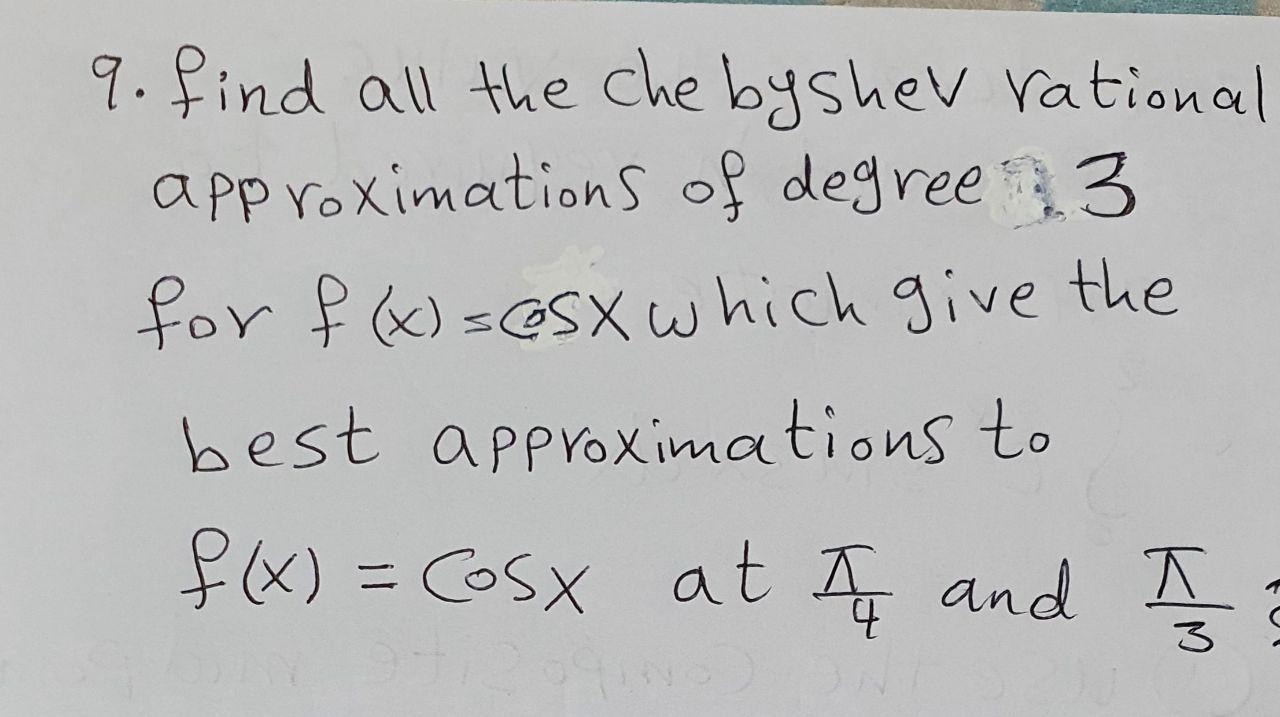 9. find all the chebyshev rational
approximations of degree 3
for f(x)=cosx which give the
best approximations to
f(x) = Cosx at π/4 and π/3